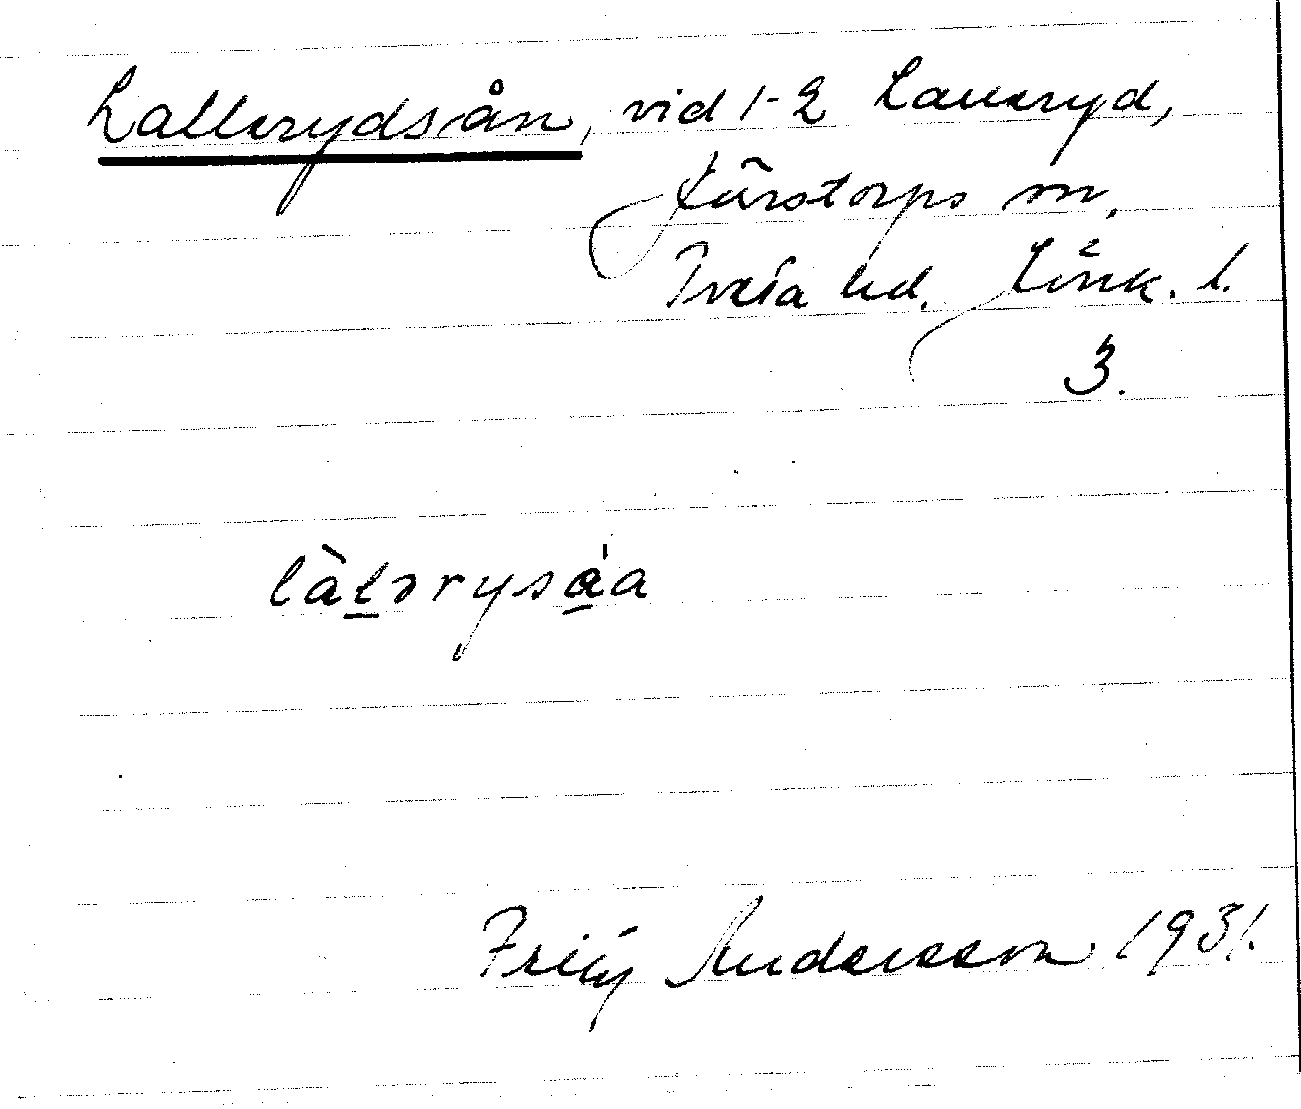 Lallerydsån, vid 1-2 Lalleryd,
Järstorps sn,
Tveta hd. Jönk. l.
3.
làlərysa̍a
Fritz Andersson 1931.